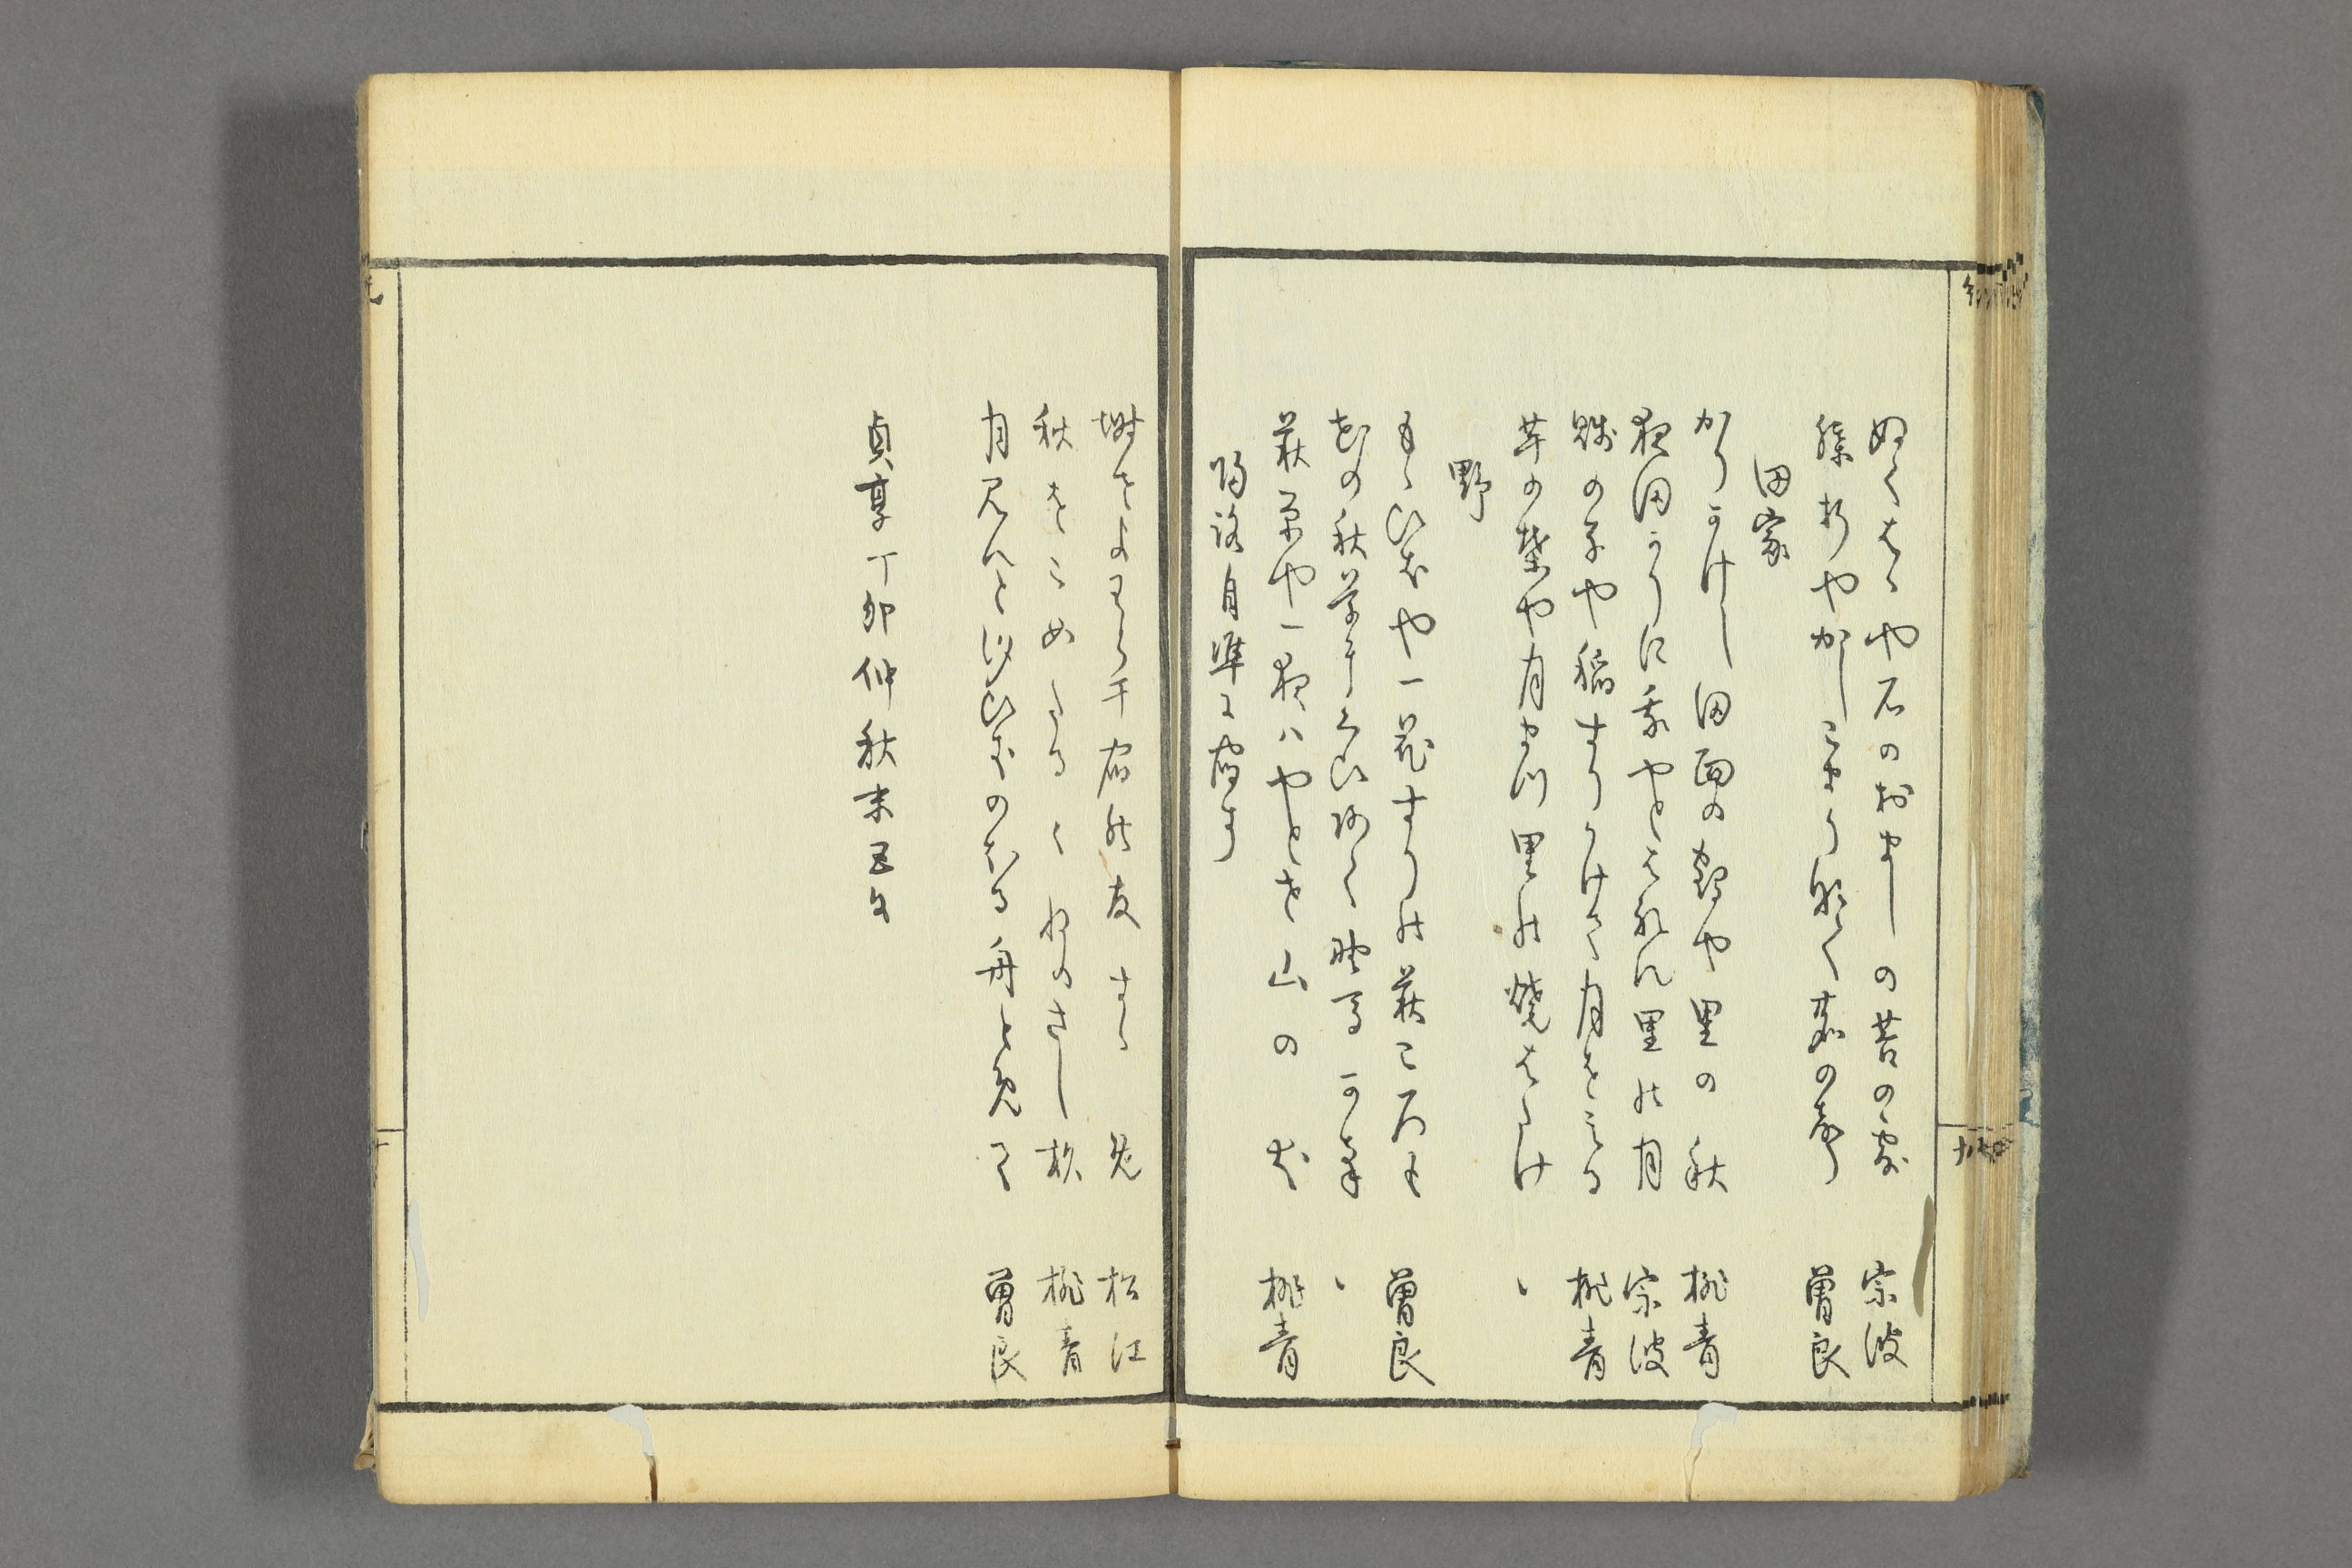 ぬくはゝや石のおましの苔の露　宗波
膝折やかしこまり鳴く鹿の声　曽良
田家
かりかけし田面の鶴や里の秋　桃青
夜田かりに我やとはれん里の月　宗波
賤の子や稲すりかけて月をミる　桃青
芋の葉や月まつ里の焼はたけ　ヽ
野
もゝひきや一花すりの萩ころも　曽良
花の秋草に喰ひあく野馬かな　ヽ
萩原や一夜ハやとせ山の犬　桃青
帰路自準に宿す
塒せよわら干宿の友すゝめ　松江
秋をこめたるくねのさし杉　桃青
月見んと汐ひきのほる舟とめて　曽良
貞享丁卯仲秋末五日